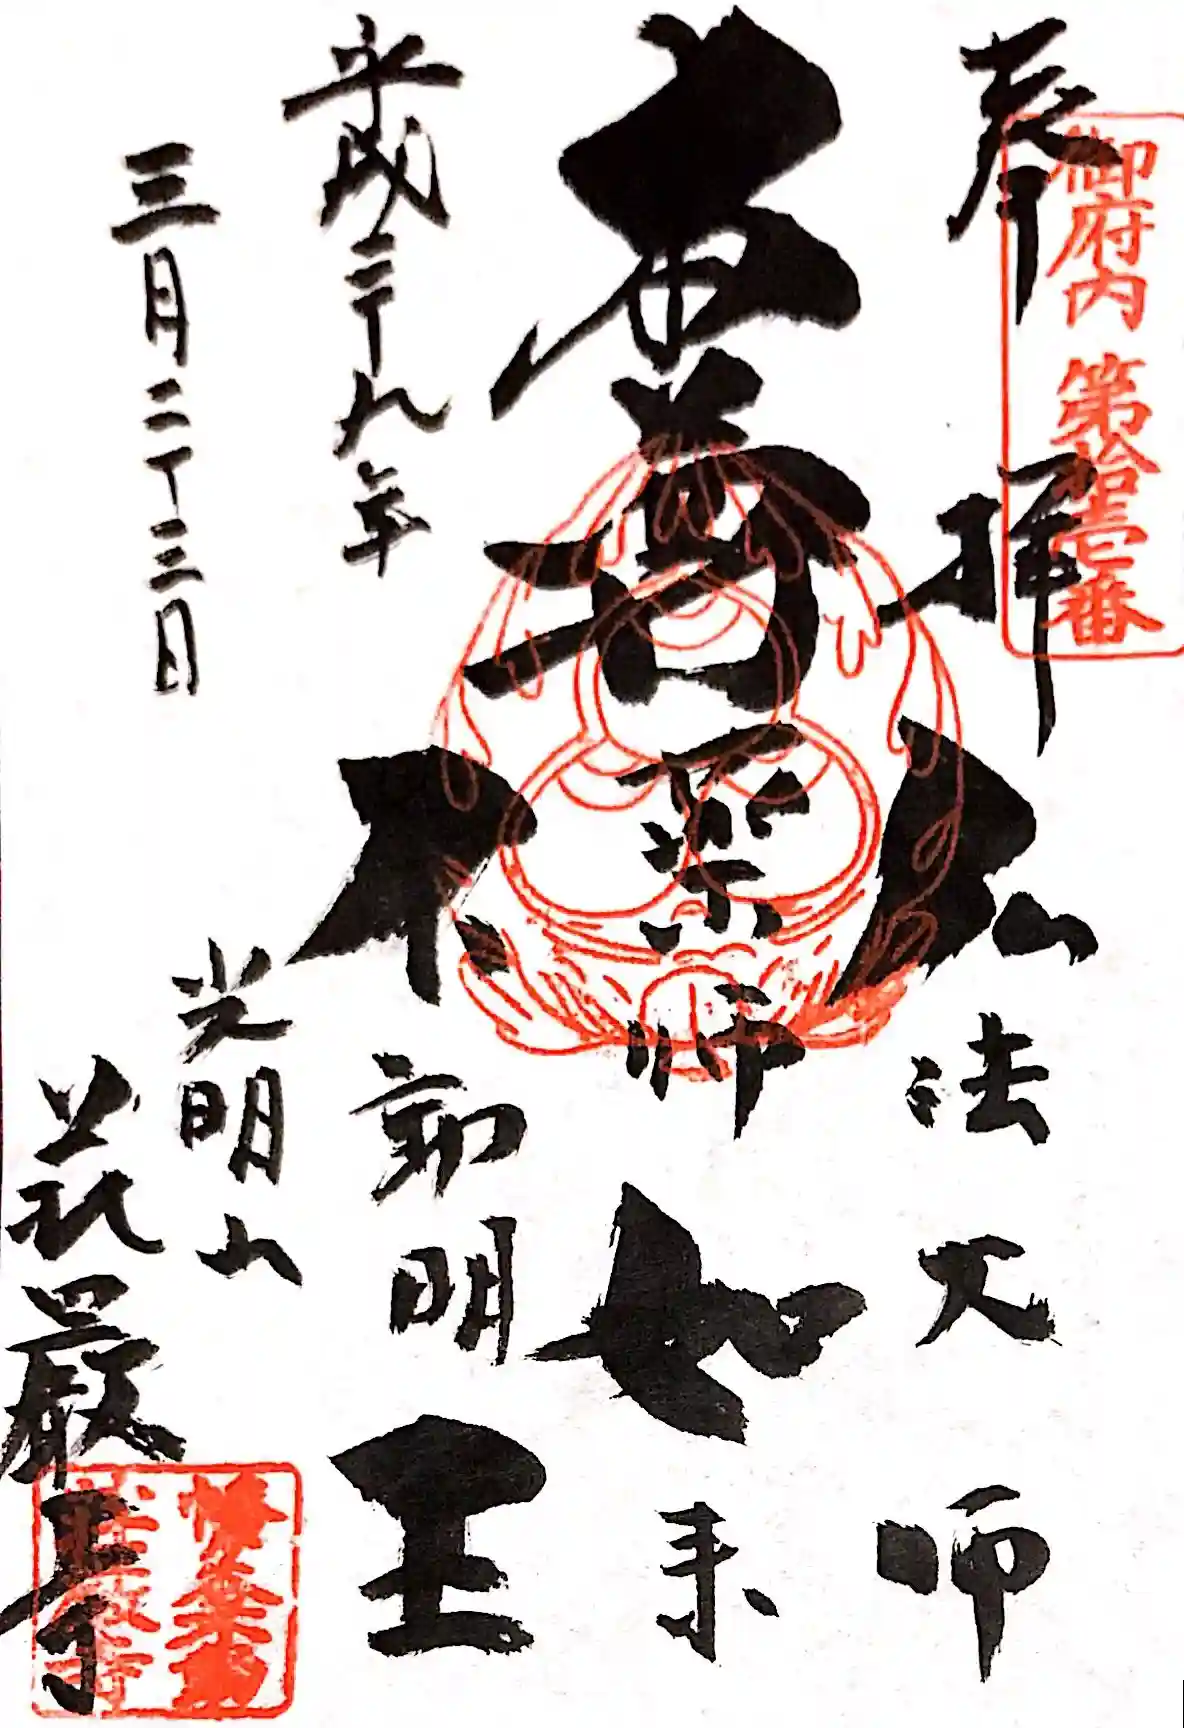 御府内 第拾壱番
奉拝
弘法大師
本尊薬師如来
不動明王
平成二十九年
三月二十三日
光明山
荘厳寺